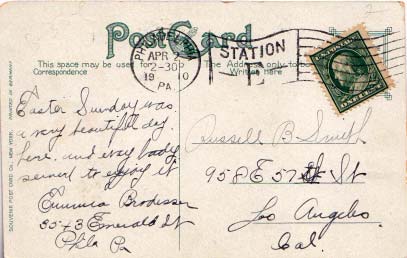 Post Card
This space may be used for
Correspondence
The Address only to be
Written here
PHILADELPHIA
APR
2-30P
19 0
PA.
STATION
E
U.S. POSTAGE
SOUVENIR POST CARD CO., NEW YORK.
PRINTED IN GERMANY
Easter Sunday was
a very beautiful day.
here. and every body
seemed to enjoy it
Emma Brodesser
3543 Emerald St
Phila Pa
Russell B Smith
958 E 57 St
Los Angeles.
Cal.